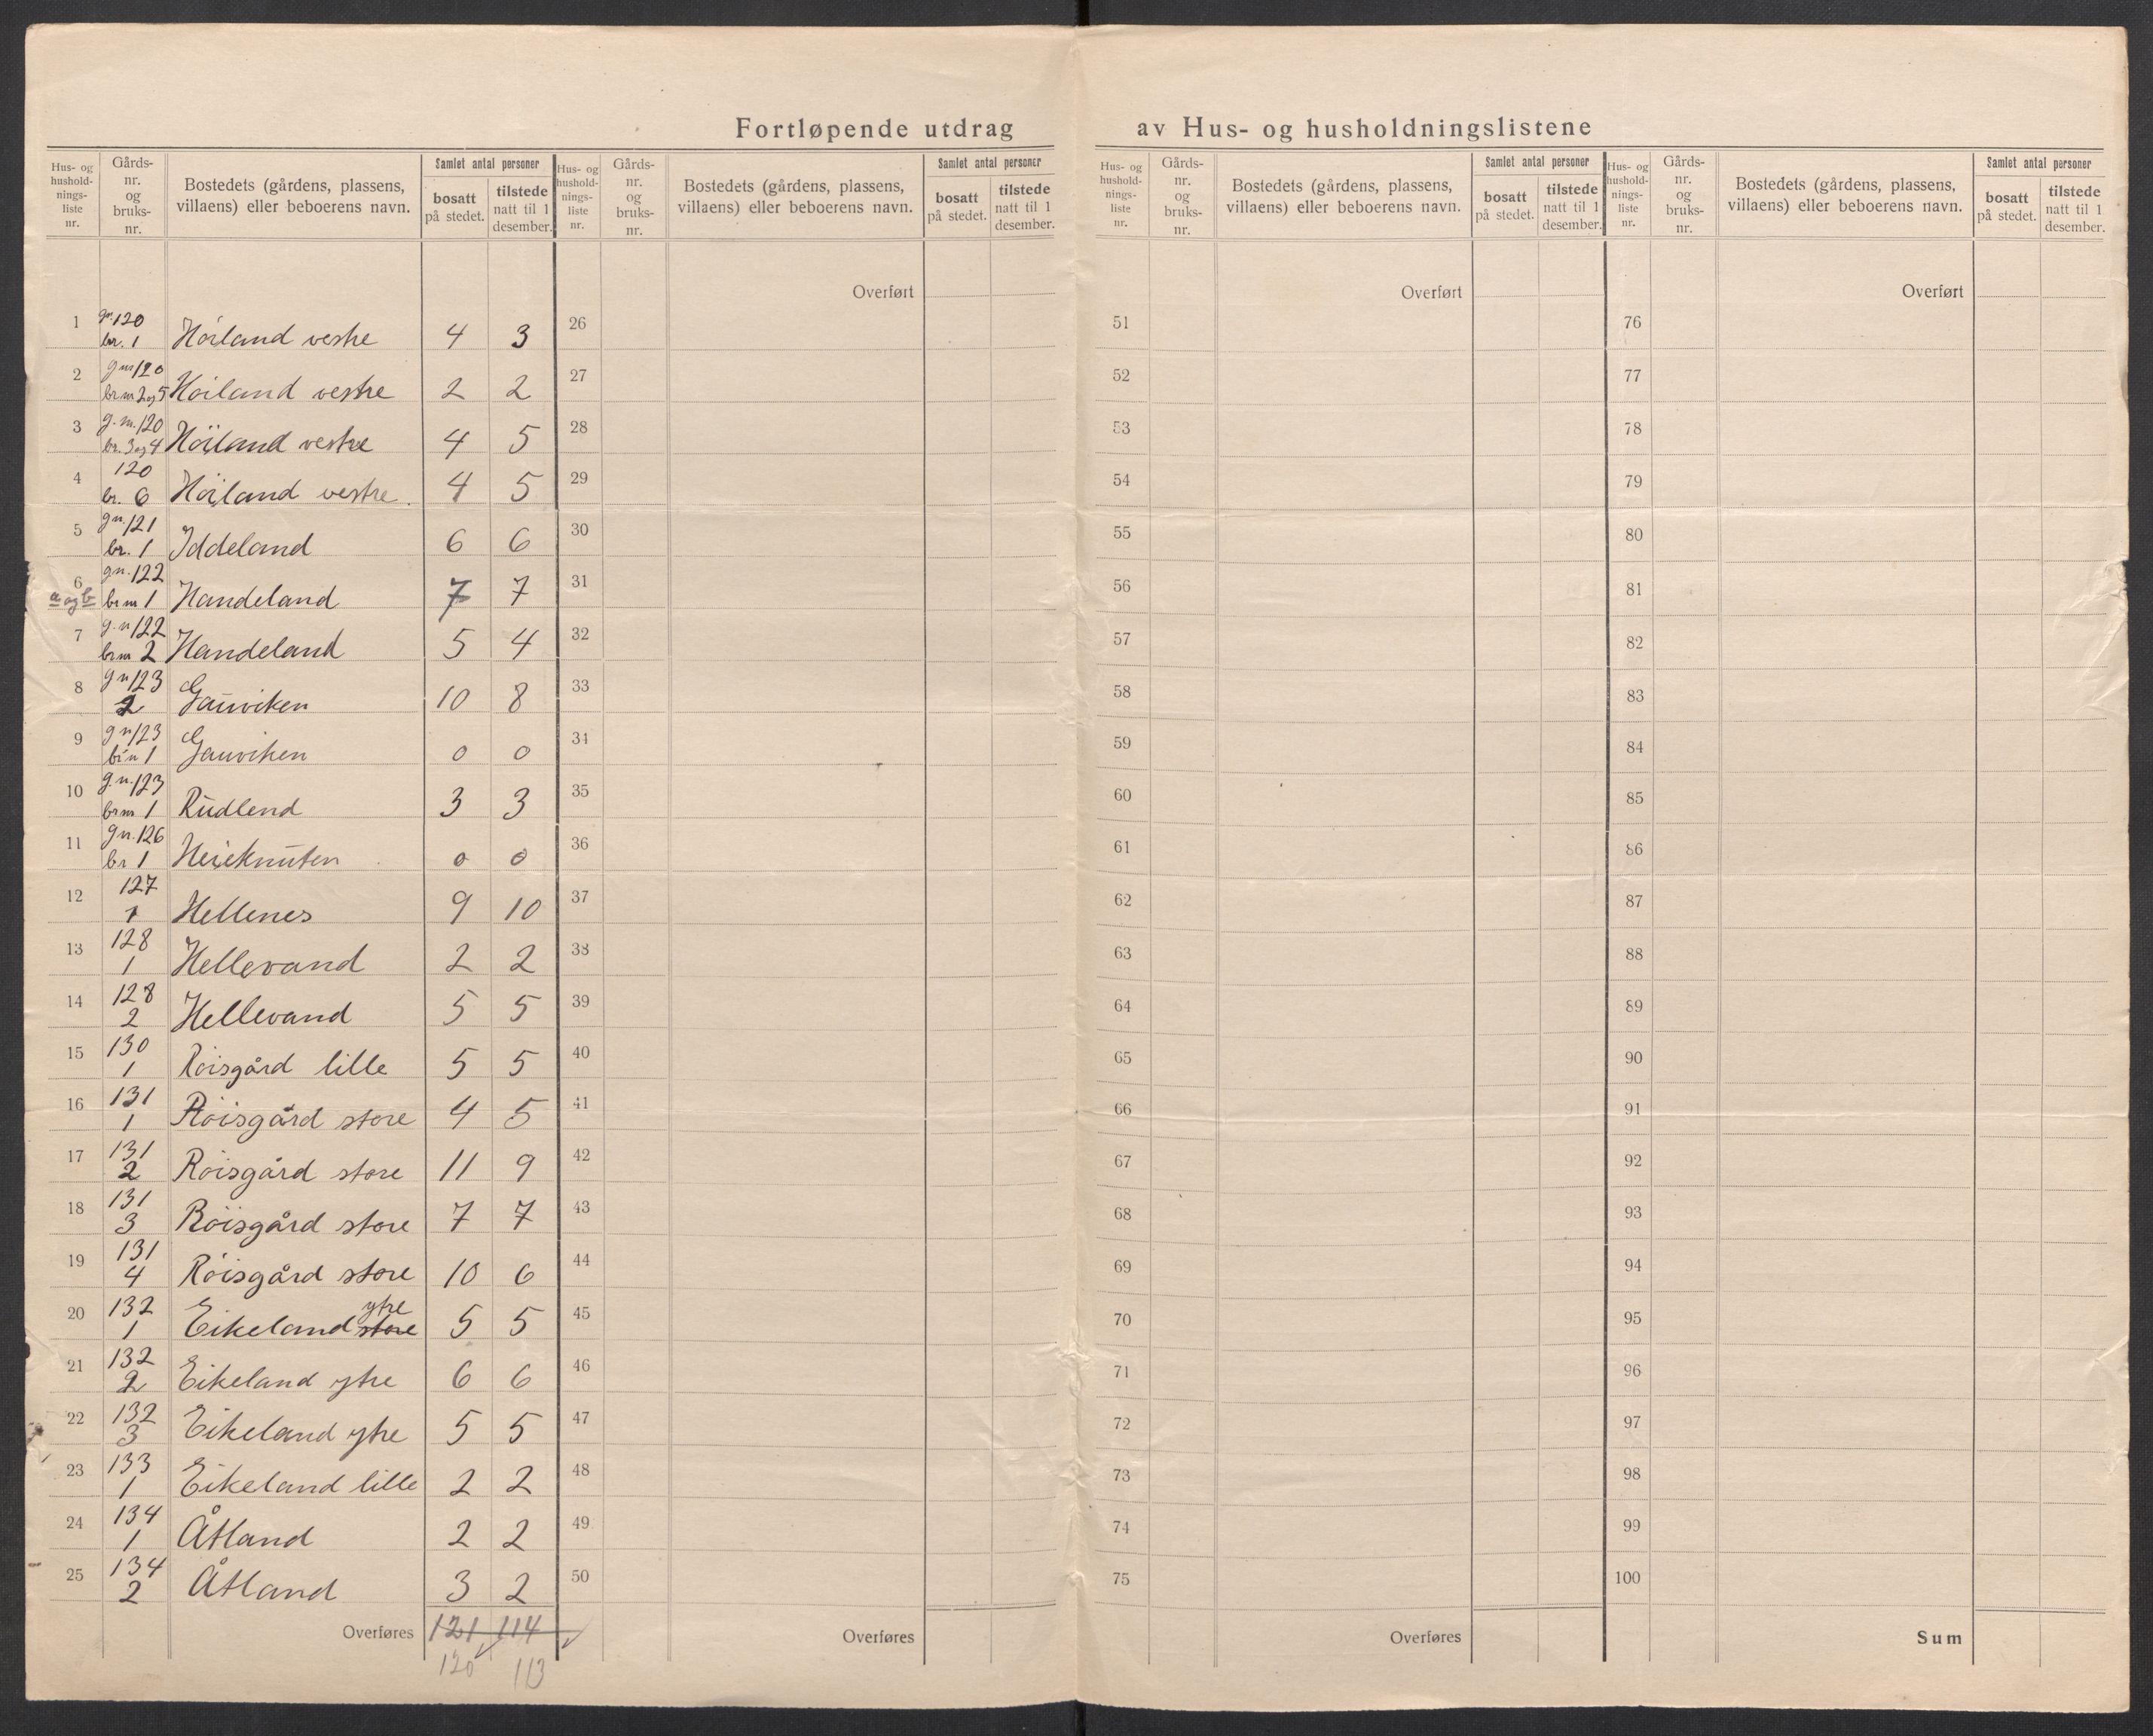 Fortløpende utdrag av Hus- og husholdningslistene
Hus- og hushold- nings- liste nr. | Gårds- nr. og bruks- nr. | Bostedets (gårdens, plassens, villaens) eller beboerens navn. | Samlet antal personer | bosatt på stedet. | tilstede natt til 1 desember.
Hus- og hushold- nings- liste nr. | Gårds- nr. og bruks- nr. | Bostedets (gårdens, plassens, villaens) eller beboerens navn. | Samlet antal personer | bosatt på stedet. | tilstede natt til 1 desember.
Hus- og hushold- nings- liste nr. | Gårds- nr. og bruks- nr. | Bostedets (gårdens, plassens, villaens) eller beboerens navn. | Samlet antal personer | bosatt på stedet. | tilstede natt til 1 desember.
Hus- og hushold- nings- liste nr. | Gårds- nr. og bruks- nr. | Bostedets (gårdens, plassens, villaens) eller beboerens navn. | Samlet antal personer | bosatt på stedet. | tilstede natt til 1 desember.
1 gn. 120 br. 1 Höiland vestre 4 3
2 gnr 120 brnr 2 og 5 Höiland vestre 2 2
3 g.nr. 120 br. 3 og 4 Höiland vestre 4 5
4 120 br. 6 Höiland vestre. 4 5
5 gn. 121 br. 1 Iddeland 6 6
6 a og b gn. 122 brnr 1 Handeland 7 7
7 g.n 122 brnr 2 Handeland 5 4
8 gn 123 2 Gauviken 10 8
9 gn 123 br n 1 Gauviken 0 0
10 g.n. 123 brnr 1 Rudlend 3 3
11 gn. 126 br 1 Heieknuten 0 0
12 127 1 Hellenes 9 10
13 128 1 Hellevand 2 2
14 128 2 Hellevand 5 5
15 130 1 Röisgård lille 5 5
16 131 1 Röisgård store 4 5
17 131 2 Röisgård store 11 9
18 131 3 Röisgård store 7 7
19 131 4 Röisgård store 10 6
20 132 1 Eikeland store ytre 5 5
21 132 2 Eikeland ytre 6 6
22 132 3 Eikeland ytre 5 5
23 133 1 Eikeland lille 2 2
24 134 1 Åtland 2 2
25 134 2 Åtland 3 2
Overføres 121 114
120 113
Overført
26
27
28
29
30
31
32
33
34
35
36
37
38
39
40
41
42
43
44
45
46
47
48
49
50
Overføres
Overført
51
52
53
54
55
56
57
58
59
60
61
62
63
64
65
66
67
68
69
70
71
72
73
74
75
Overføres
Overført
76
77
78
79
80
81
82
83
84
85
86
87
88
89
90
91
92
93
94
95
96
97
98
99
100
Sum